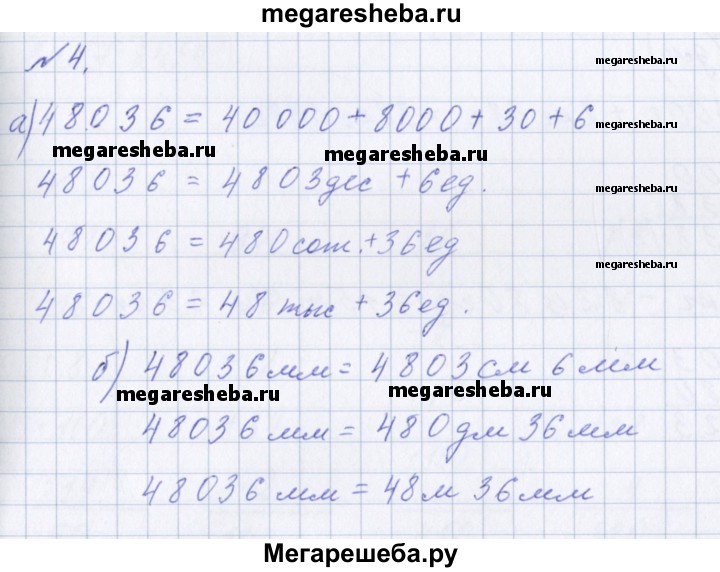 megaresheba.ru
№ 4.
megaresheba.ru
а) 48036 = 40 000 + 8000 + 30 + 6 megaresheba.ru
megaresheba.ru megaresheba.ru
48036 = 4803дес + 6ед. megaresheba.ru
48036 = 480сот. + 36ед
megaresheba.ru
48036 = 48 тыс + 36ед.
б) 48036мм = 4803см 6мм
megaresheba.ru megaresheba.ru
48036 мм = 480дм 36мм
48036 мм = 48м 36мм
Мегарешеба.ру